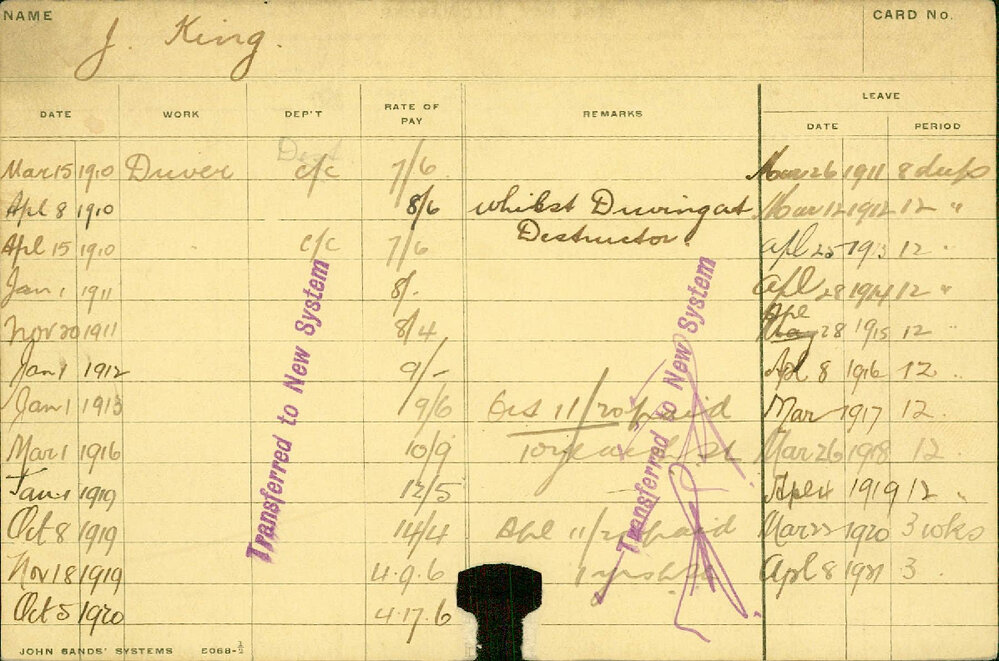 NAME J. King. CARD No.
LEAVE
DATE WORK DEP'T RATE OF PAY REMARKS DATE PERIOD
Mar 15 1910 Driver c/c 7/6 Mar 26 1911 8 days
Apl 8 1910 8/6 whilst Driving at Mar 12 1912 12 "
Apl 15 1910 c/c 7/6 Destructor. Apl 25 1913 12 "
Jan 1 1911 8/- Apl 28 1914 12 "
Nov 20 1911 8/4 Apl 28 1915 12 "
Jan 1 1912 9/- Apl 8 1916 12 "
Jan 1 1913 9/6 11/20 paid Mar 1917 12 .
Mar 1 1916 10/9 Mar 26 1918 12 .
Jan 1 1919 12/5 Apl 4 1919 12 "
Oct 8 1919 14/4 Apl 11/20 paid Mar 22 1920 3 wks
Nov 18 1919 4.9.6 Apl 8 1921 3 .
Oct 5 1920 4.17.6
Transferred to New System
Transferred to New System
JOHN SANDS' SYSTEMS 5068-½